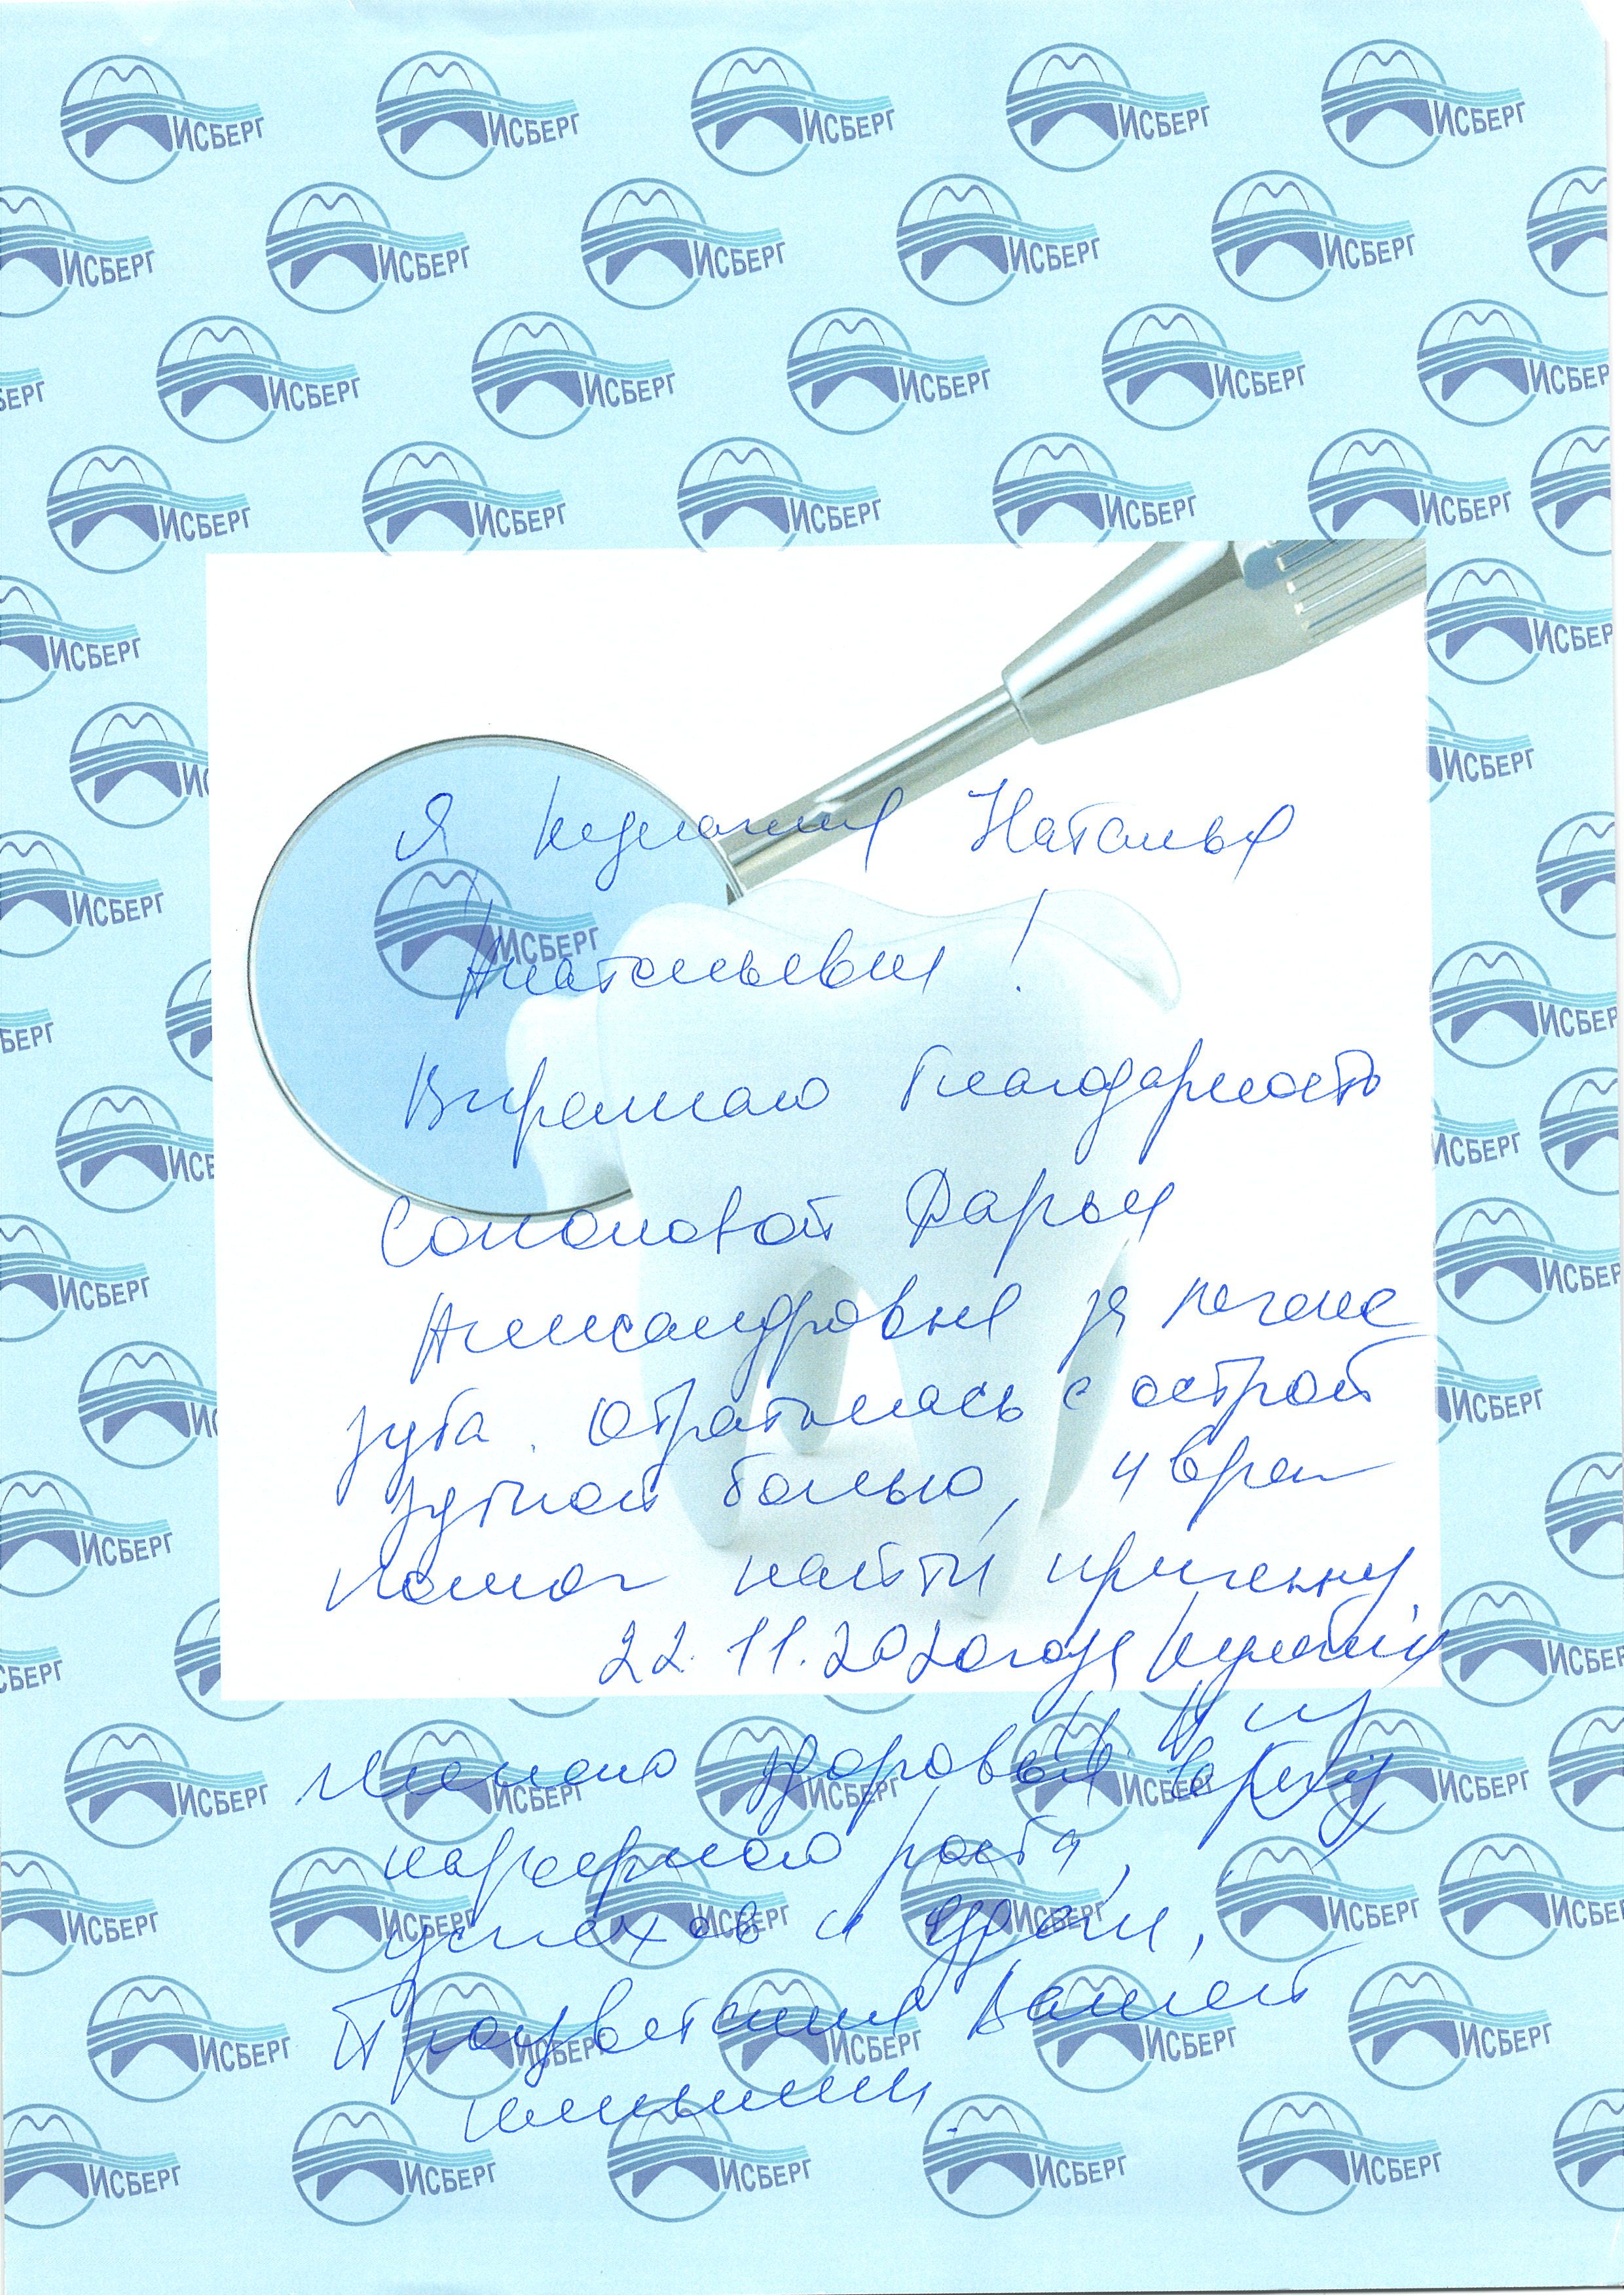 Я Наталья
Анатольевна!
Выражаю благодарность
Соколовой Дарье
Александровне за лечение
зуба. Обратилась с острой
зубной болью, и врач
помог найти причину
22.11.2020 года
желаю здоровья,
карьерного роста,
успехов и удачи,
Процветания Вашей
клиники.
ИСБЕРГ